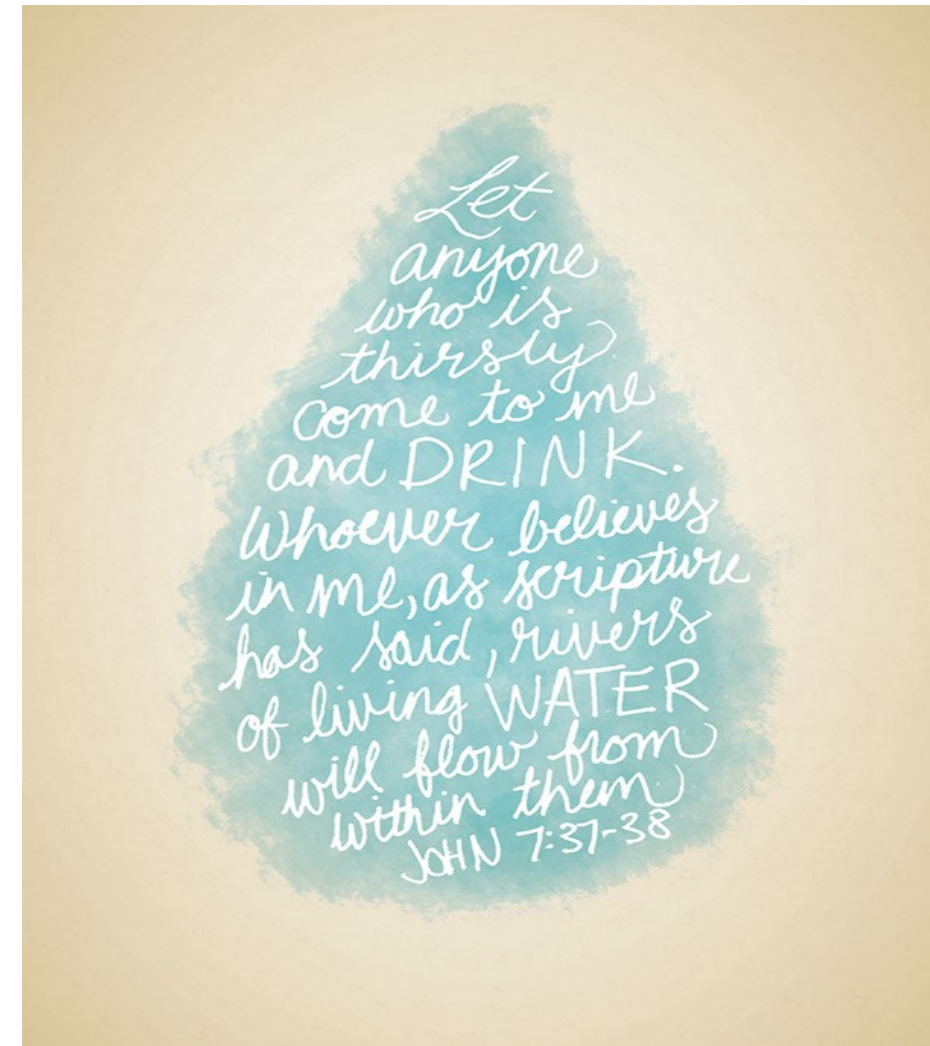 Let
anyone
who is
thirsty
come to me
and DRINK.
Whoever believes
in me, as scripture
has said, rivers
of living WATER
will flow from
within them
JOHN 7:37-38